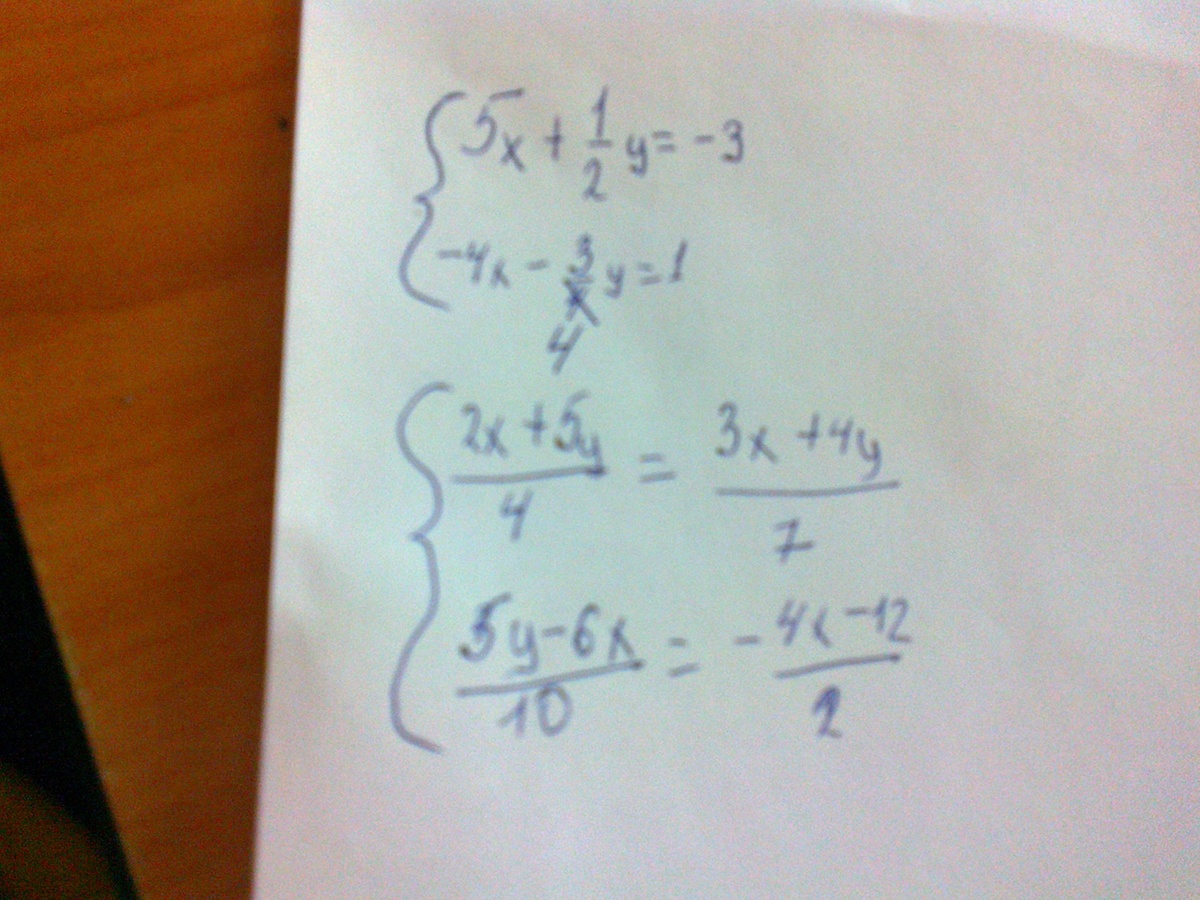 5x + 1/2 y = -3
-4x - 3/4 y = 1
(2x + 5y)/4 = (3x + 4y)/7
(5y - 6x)/10 = - (4x - 12)/2